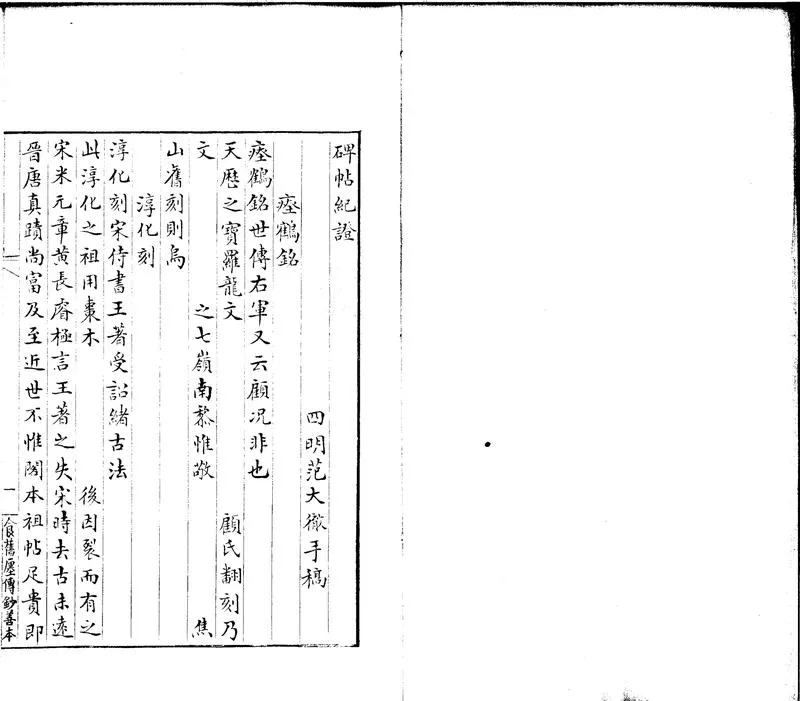 碑帖紀證
四明范大澈手稿
瘞鶴銘
瘞鶴銘世傳右軍又云顧况非也
天歷之寶羅龍文　　　　顧氏翻刻乃
文　　　　之七嶺南黎惟敬　　　　焦
山舊刻則烏
淳化刻
淳化刻宋侍書王著受詔緒古法
此淳化之祖用棗木　　　　後因裂而有之
宋米元章黄長睿極言王著之失宋時去古未遠
晉唐真蹟尚富及至近世不惟閣本祖帖足貴即
一
舊廛傳鈔善本